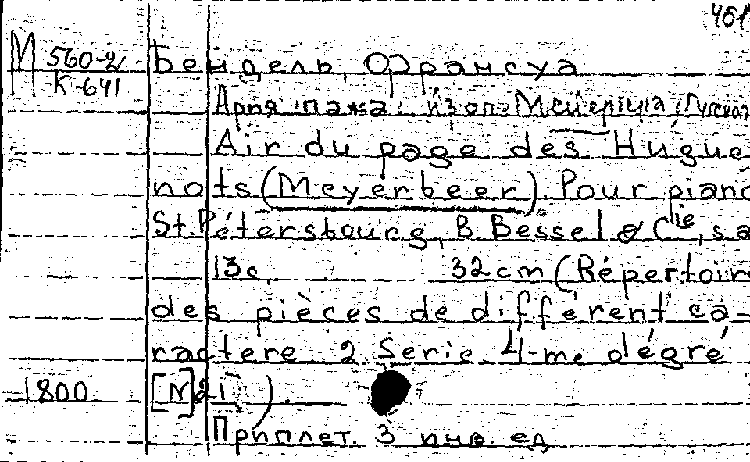 451
М 560-2 Бендель, Франсуа
К-641
Ария пажа из оп. Мейербера
Air du page des Hugue-
nots (Meyerbeer). Pour piano
St. Pétersbourg, B. Bessel & Cie, s.a
13 c. 32 cm (Répertoir
des pièces de différent ca-
ractere 2 Serie 4-me dégré
1800 [N21])
Приплет. 3 инв. ед